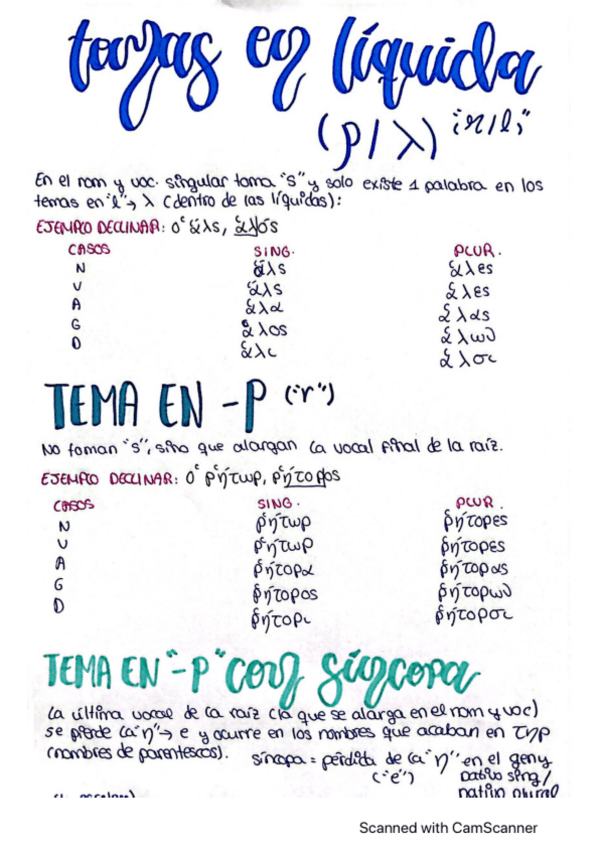 temas en líquida
(ρ/λ) "r/l"
En el nom y voc. singular toma "s" y solo existe 1 palabra en los
temas en "l" → λ (dentro de las líquidas):
EJEMPLO DECLINAR: ὁ ἅλς, ἁλός
CASOS SING. PLUR.
N ἅλς ἅλες
V ἅλς ἅλες
A ἅλα ἅλας
G ἅλος ἅλων
D ἅλι ἅλσι
TEMA EN -ρ ("r")
No toman "s", sino que alargan la vocal final de la raíz.
EJEMPLO DECLINAR: ὁ ῥήτωρ, ῥήτορος
CASOS SING. PLUR.
N ῥήτωρ ῥήτορες
V ῥήτωρ ῥήτορες
A ῥήτορα ῥήτορας
G ῥήτορος ῥήτορων
D ῥήτορι ῥήτορσι
TEMA EN "-ρ" con síncopa
La última vocal de la raíz (la que se alarga en el nom y voc)
se pierde la "η" → e y ocurre en los nombres que acaban en τηρ
(nombres de parentescos). síncopa = pérdida de la "η" en el gen y
("e") dativo sing/
dativo plural
Scanned with CamScanner